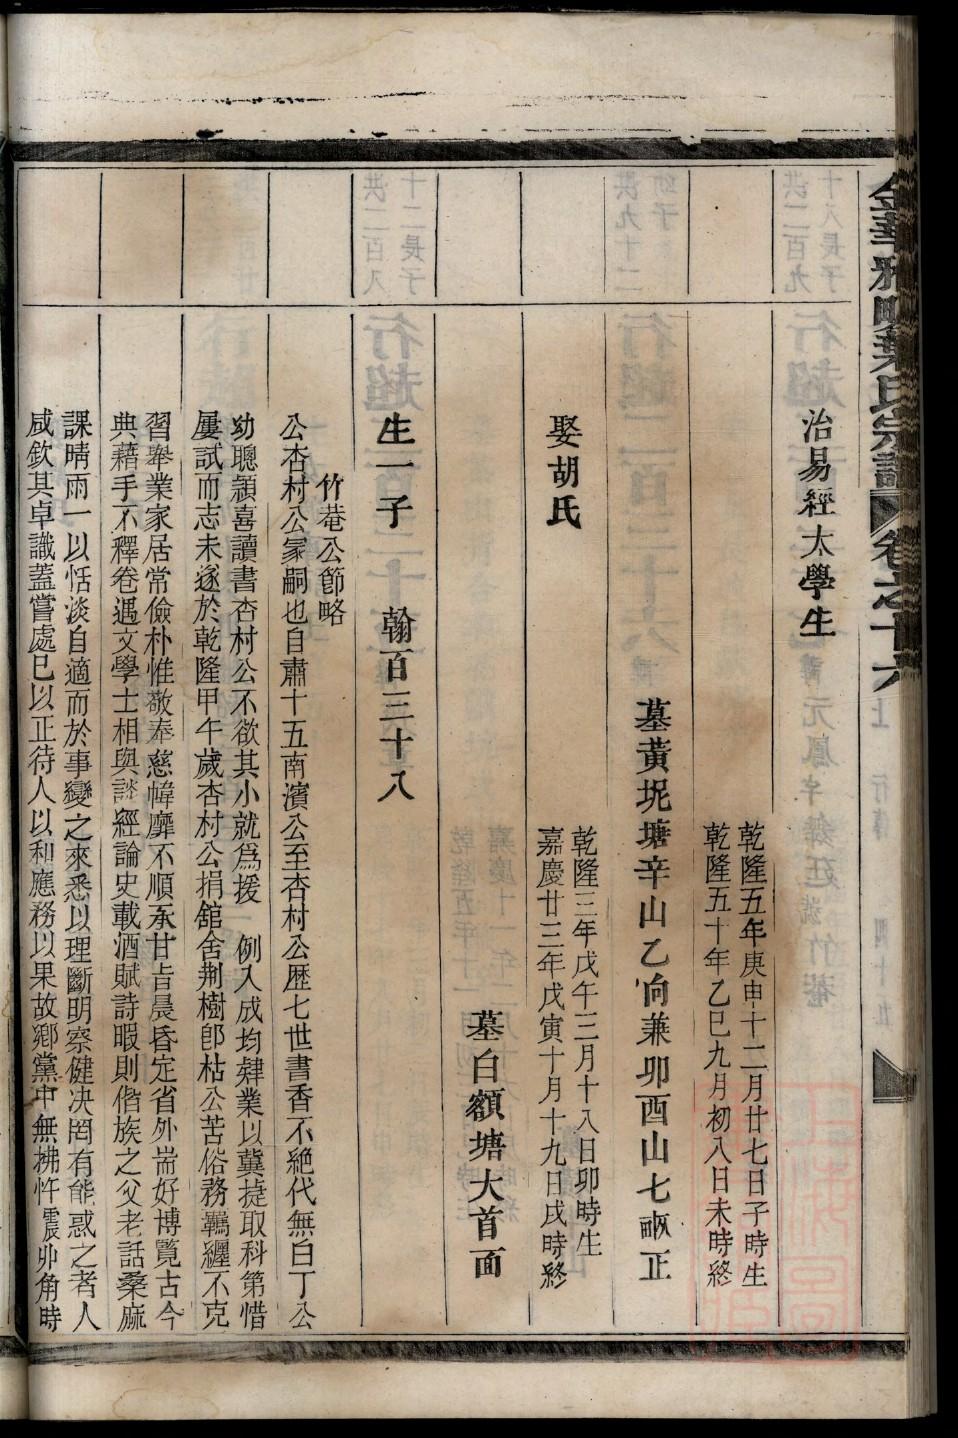 金華雅畈葉氏宗譜 卷之十六
治易經太學生
乾隆五年庚申十二月廿七日子時生
乾隆五十年乙巳九月初八日未時終
墓黃坭塘辛山乙向兼卯酉山七畝正
娶胡氏
乾隆三年戊午三月十八日卯時生
嘉慶廿三年戊寅十月十九日戌時終
墓白額塘大首面
生一子 翰百三十八
竹菴公節略
公杏村公冢嗣也自肅十五南濱公至杏村公歷七世書香不絕代無白丁公
幼聰頴喜讀書杏村公不欲其小就爲援 例入成均肄業以冀㨗取科第惜
屢試而志未遂於乾隆甲午歲杏村公捐舘舍荆樹卽枯公苦俗務羈纏不克
習舉業家居常儉朴惟敬奉慈幃靡不順承甘旨晨昏定省外耑好博覧古今
典藉手不釋卷遇文學士相與談經論史載酒賦詩暇則偕族之父老話桑麻
課晴雨一以恬淡自適而於事變之來悉以理斷明察健决罔有能惑之者人
咸欽其卓識蓋嘗處已以正待人以和應務以果故鄉黨中無拂忤震丱角時